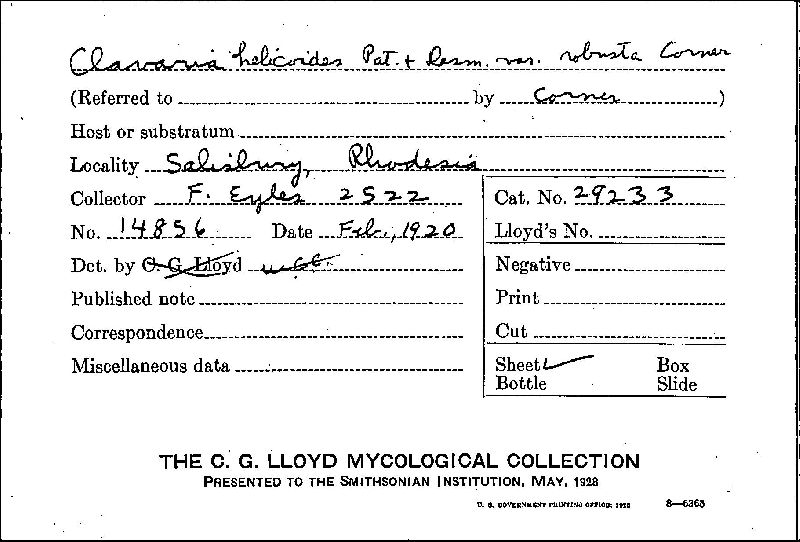 Clavaria helicoides Pat. + Desm. var. robusta Corner
(Referred to by Corner)
Host or substratum
Locality Salisbury, Rhodesia
Collector F. Eyles 2522
Cat. No. 29233
No. 14856 Date Feb., 1920
Lloyd's No.
Det. by C. G. Lloyd
Negative
Published note
Print
Correspondence
Cut
Miscellaneous data
Sheet ✓ Box
Bottle Slide
THE C. G. LLOYD MYCOLOGICAL COLLECTION
PRESENTED TO THE SMITHSONIAN INSTITUTION, MAY, 1928
U. S. GOVERNMENT PRINTING OFFICE: 1928 8—6365